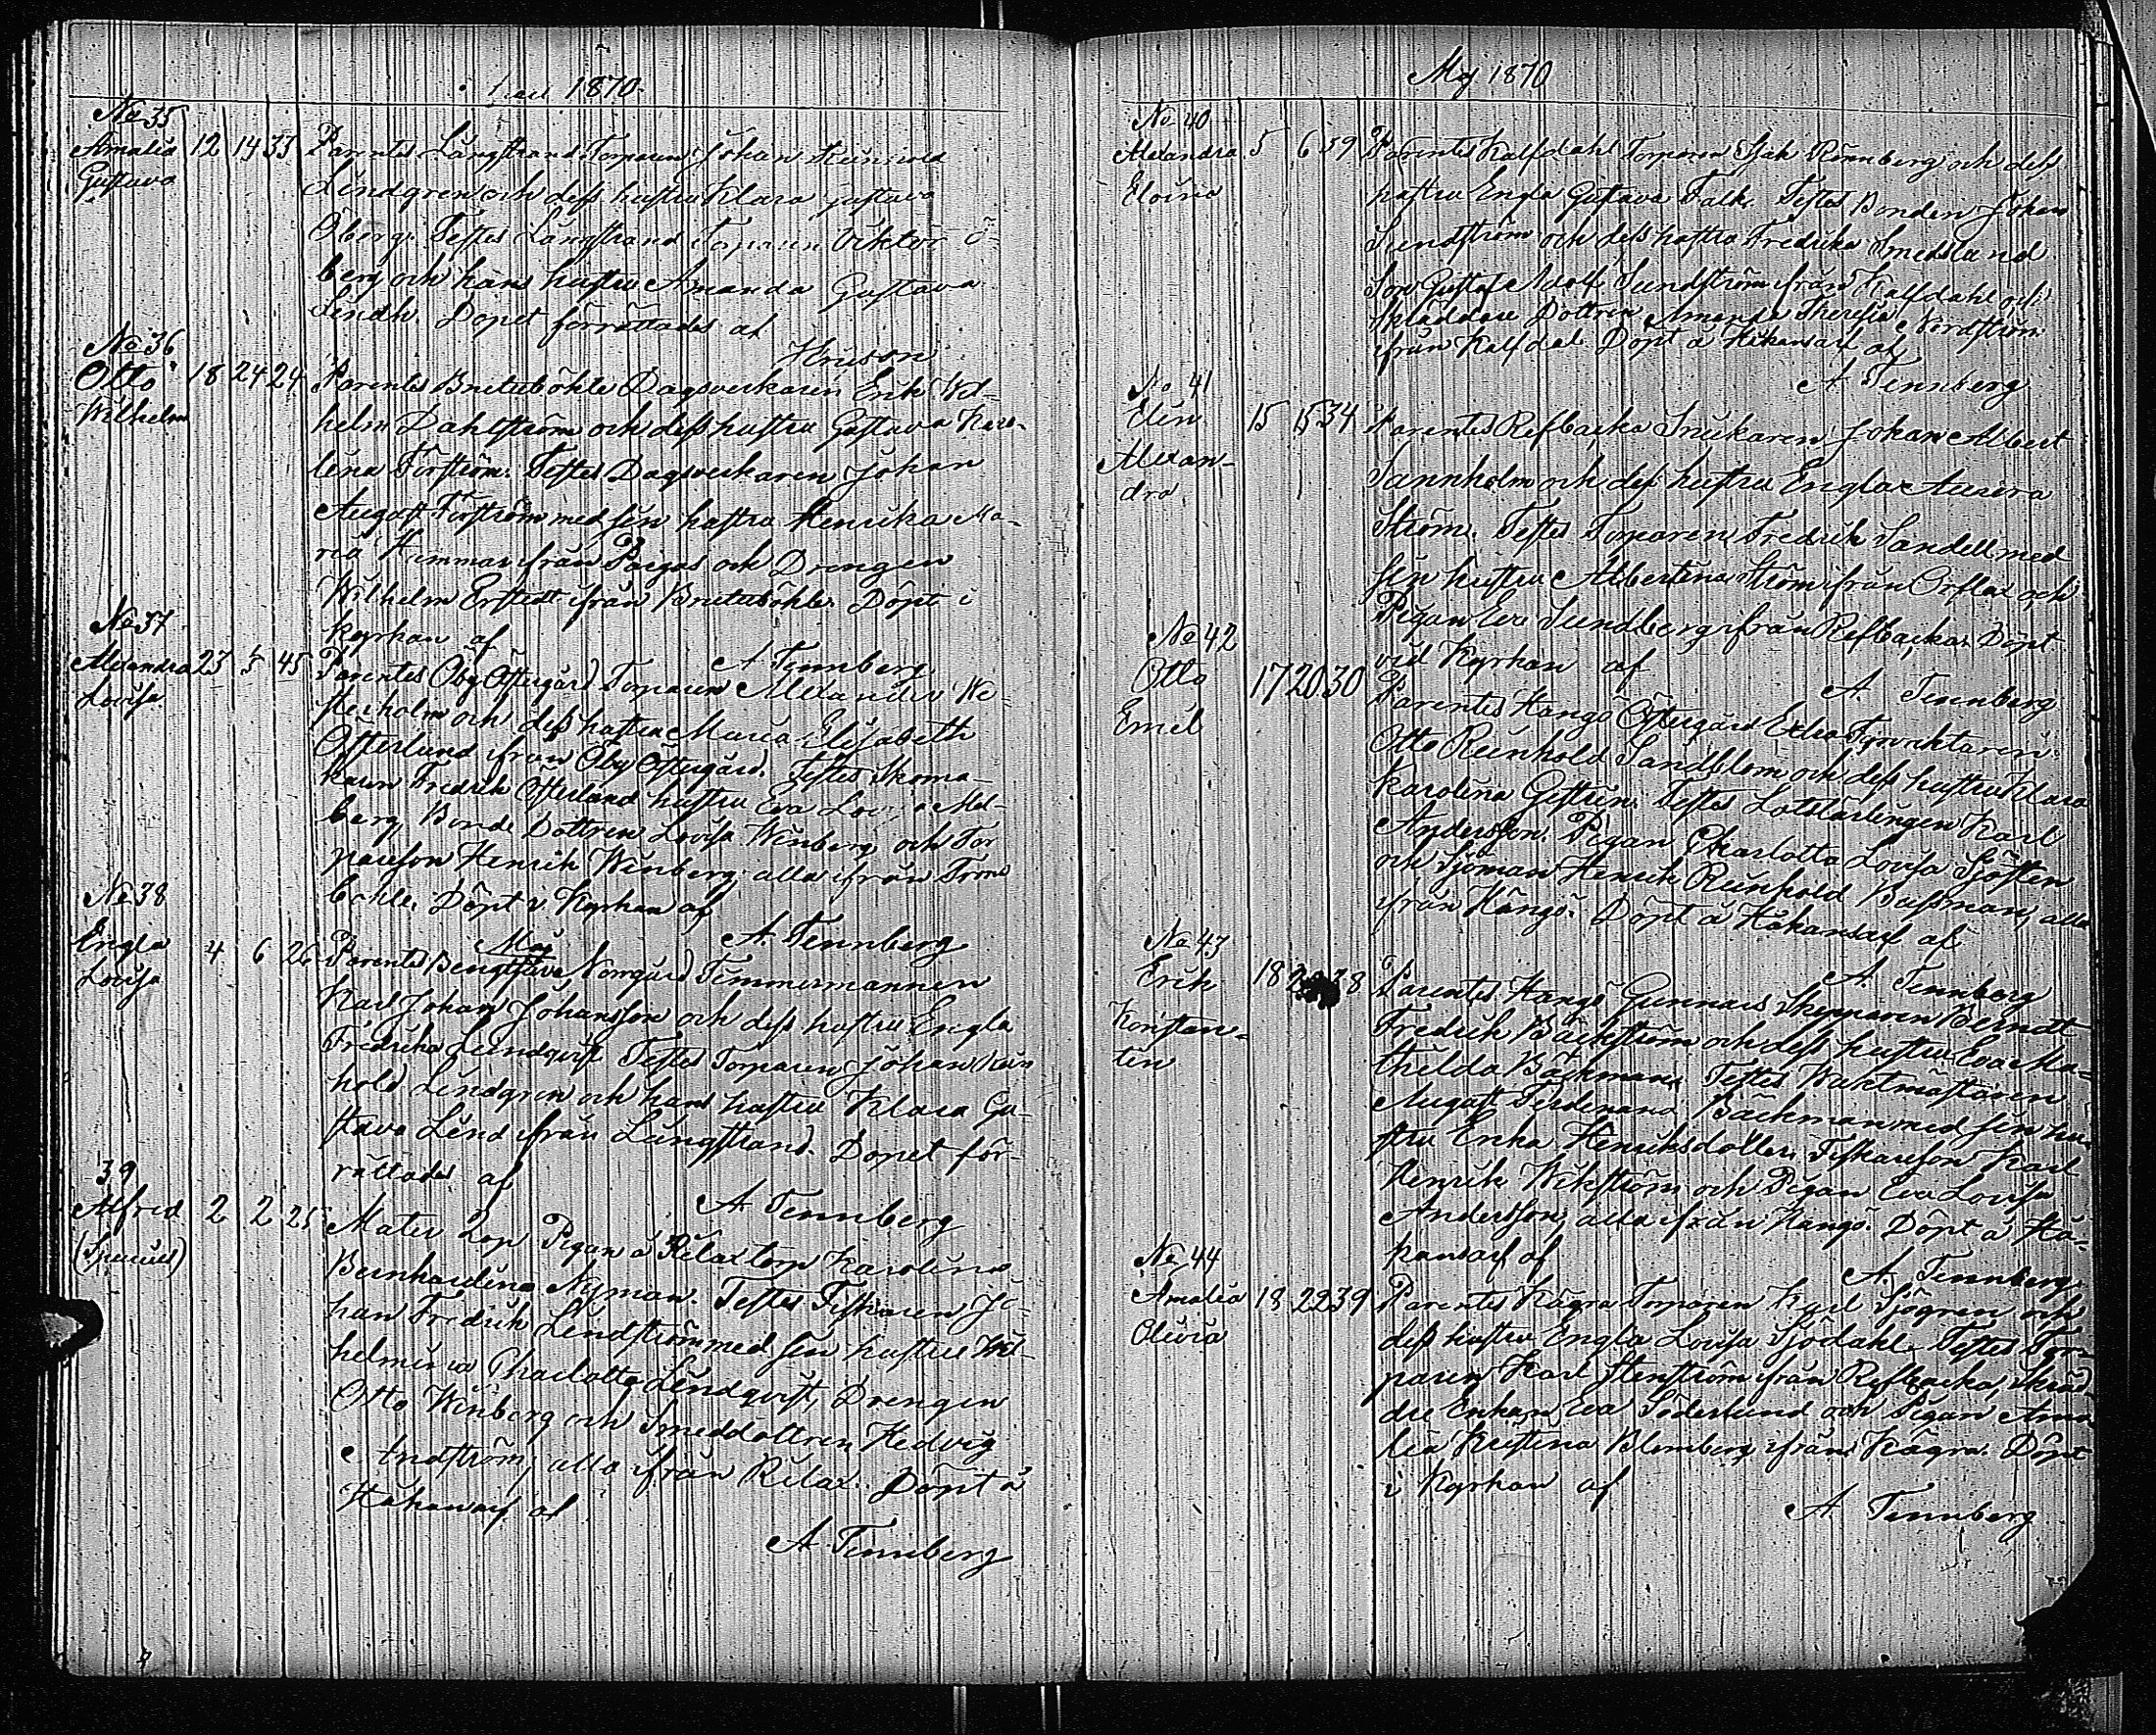 1870
No 35
Amalia 12 14 33 Parentes Långstrand Torparen Johan
Gustava
Lindgren och dess hustru Klara Gustava
Öberg. Testes Långstrand Torparen Viktor Ö-
berg och hans hustru Amanda Gustava
Lindh. Dopet förrättades af
No 36
Otto 18 24 24 Parentes Bruteböhle Dagsverkaren Erik Wil-
Wilhelm
helm Dahlström och dess hustru Gustava Karo-
lina Forström. Testes Dagsverkaren Johan
August Forström med sin hustru Henrika Ma-
ria från och Drengen
Wilhelm Erstedt ifrån Bruteböhle. Döpt i
kyrkan af
A. Tennberg
No 37
Alexandra 23 5 45 Parentes Öby Östergård Torparen Alexander We-
Lovisa
sterholm och dess hustru Maria Elisabeth
Österlund ifrån Öby Östergård. Testes Skoma-
karen Fredrik Österlund hustru Eva Mel-
berg, Bonde Dottren Lovisa Winberg och Tor
pareson Henrik Winberg, alla ifrån Troms
böhle. Döpt i Kyrkan af
A. Tennberg
No 38
Maj
Engla 4 6 26 Parentes Norrgård Timmermannen
Lovisa
Karl Johan Johansson och dess hustru Engla
Fredrika Lundqvist Testes Torparen Johan Rein
hold Lindgren och hans hustru Klara Gu-
stava Lind ifrån Långstrand. Dopet för-
rättades af
A. Tennberg
39
Alfred 2 2 25 Mater Lösp. Pigan å Rilax torp Karolina
(Spurius)
Bernhardina Nyman. Testes Fiskaren Jo-
han Fredrik Lindström med sin hustru Wil-
helmina Charlotta Lindqvist, Drengen
Otto Winberg och Smeddottren Hedvig
Lindström, alla ifrån Rilax. Döpt å
Håkansarf af
A. Tennberg
Maj 1870
No 40
Alexandra 5 6 39 Parentes Kalfdahl Torparen Isak Rönnberg och dess
hustru Engla Gustava Falk. Testes Bonden Johan
Sundström och dess hustru Fredrika Smedslund
Son Gustaf Adolf Sundström ifrån Kalfdahl och
Skräddare Dottren Amanda Theresia Nordström
ifrån Kalfdal. Döpt å Håkansarf af
A. Tennberg
No 41
Elin 15 15 34 Parentes Refbacka Snickaren Johan Albert
Alexan-
dra
Sannholm och dess hustru Engla Aurora
Ström. Testes Torparen Fredrik Sandell med
sin hustru Albertina Ström ifrån och
Pigan Eva Sundberg ifrån Refbacka. Döpt
vid Kyrkan af
A. Tennberg
No 42
Otto 17 20 30 Parentes Hangö Östergård Extra Fyrvaktaren
Emil
Otto Reinhold Sandblom och dess hustru Klara
Karolina Gestrin. Testes Lotslärlingen Karl
Andersson. Pigan Charlotta Lovisa Sjösten
och Sjöman Henrik Reinhold Bussman, alla
ifrån Hangö. Döpt å Håkansarf af
A. Tennberg
No 43
Erik 18 38 Parentes Hangö Gunnars Skepparen Berndt
Konstan-
tin
Fredrik Bäckström och dess hustru Eva Ma-
thilda Bäckman. Testes Waktmästaren
August Ferdinand Bäckman med sin hu-
stru Erika Henriksdotter. Fiskareson Karl
Henrik Wikström och Pigan Eva Lovisa
Andersson, alla ifrån Hangö. Döpt å Hå-
kansarf af
A. Tennberg
No 44
Amalia 18 22 39 Parentes Kågra Torparen Karl Sjögren och
Olivia
dess hustru Engla Lovisa Sjödahl. Testes Tor-
paren Karl Stenström ifrån Refbacka, Skräd-
dre Enkan Eva Söderlund och Pigan Ama
lia Kristina Blomberg ifrån Kågra. Döpt
i Kyrkan af
A. Tennberg